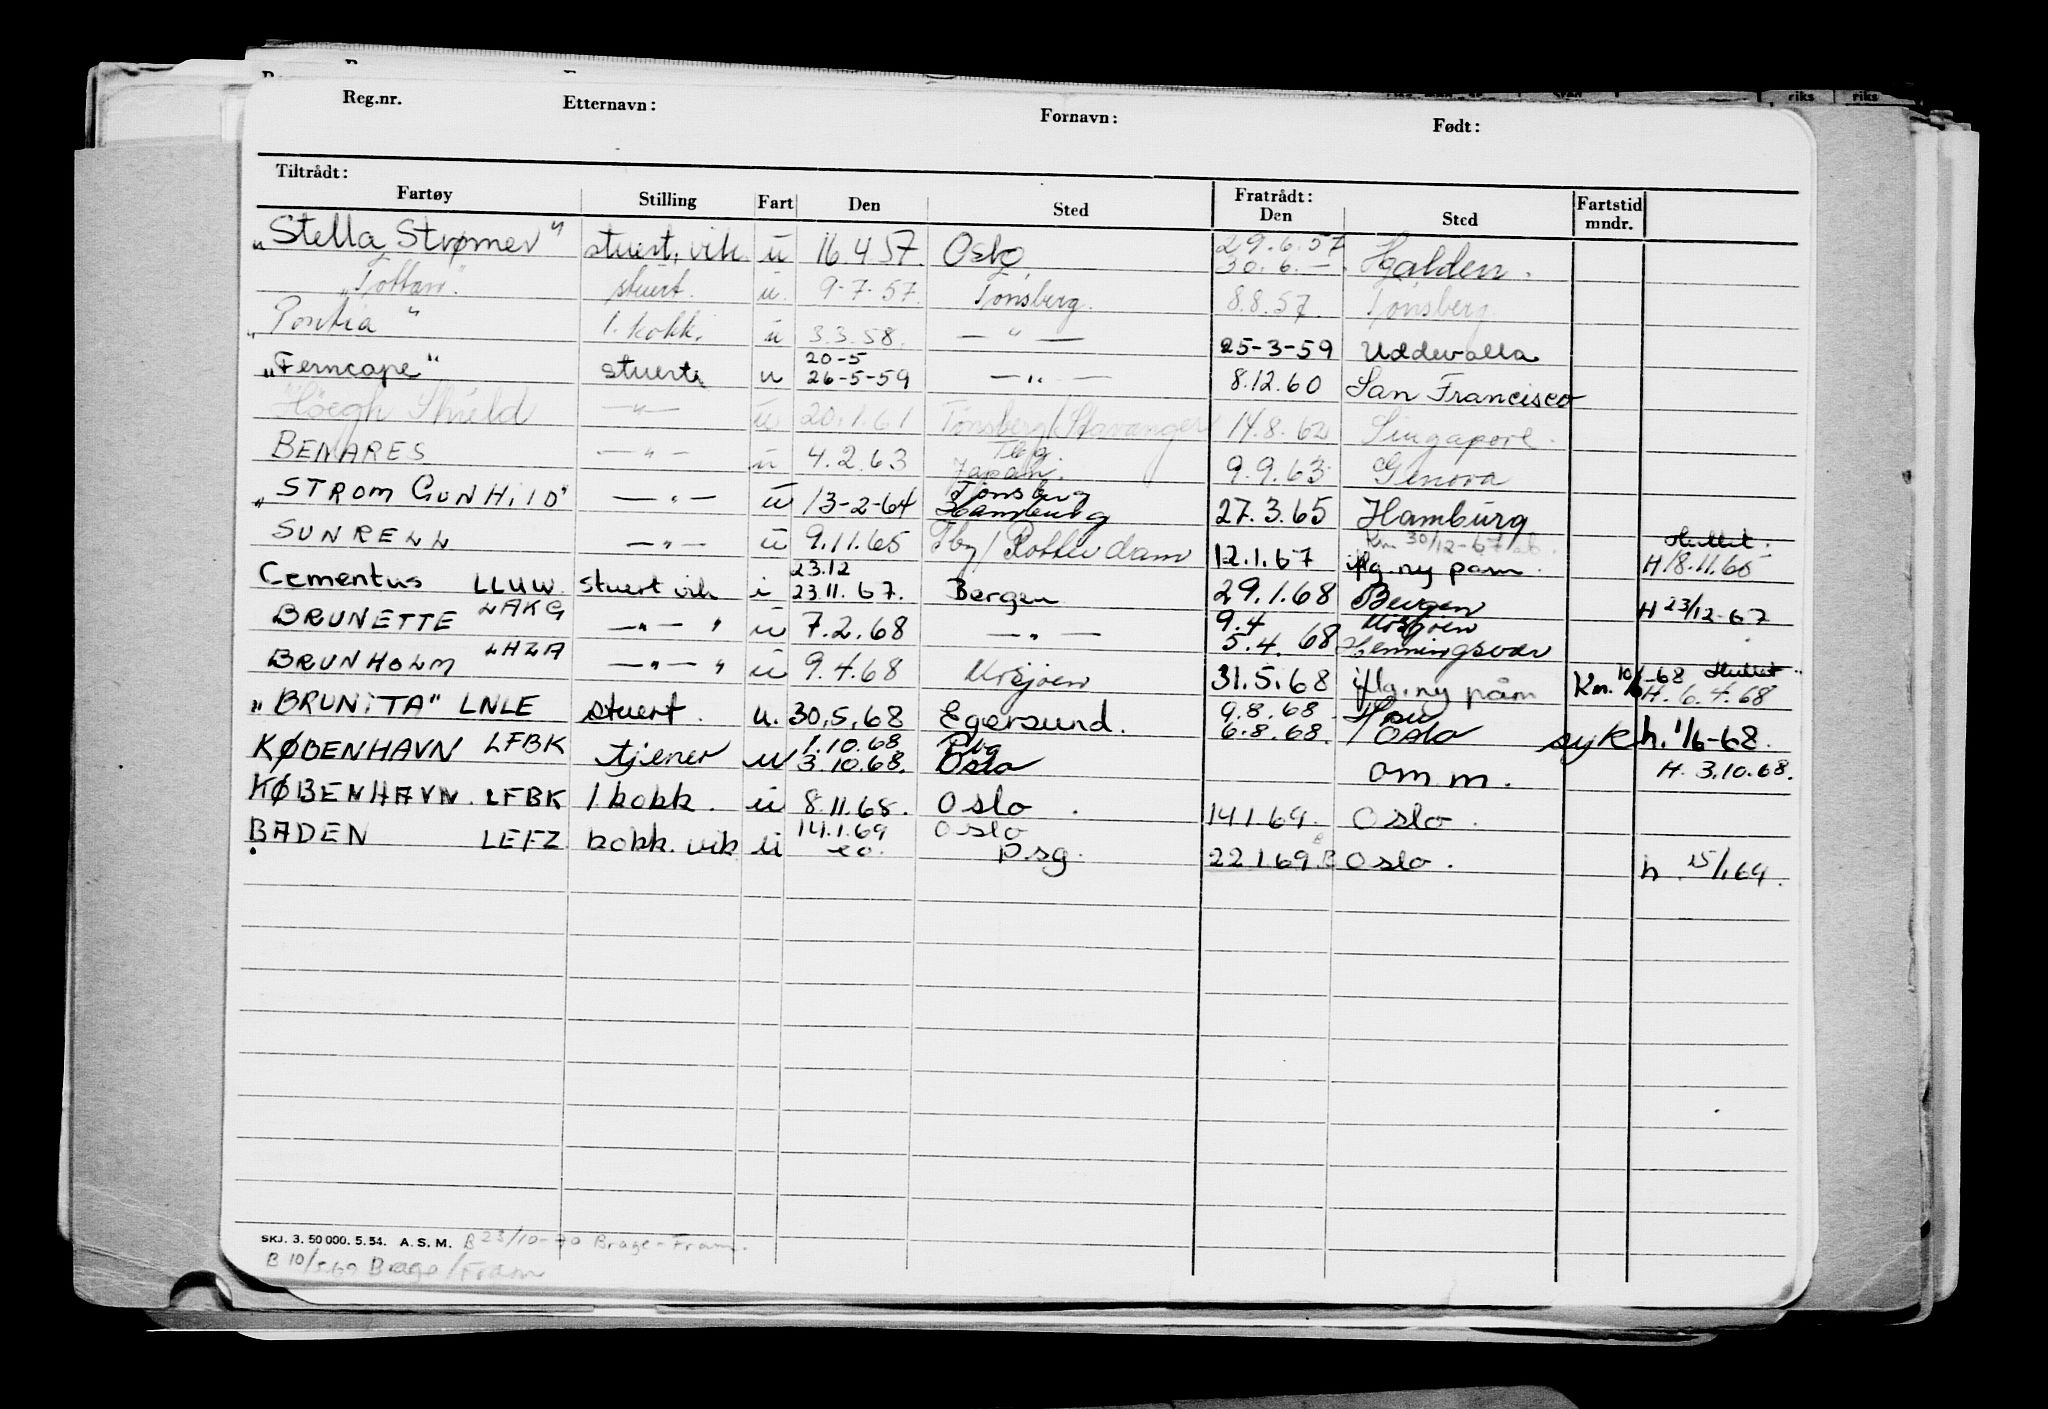 riks riks
Reg.nr. Etternavn: Fornavn: Født:
Tiltrådt: Fratrådt:
Fartøy Stilling Fart Den Sted Den Sted Fartstid mndr.
"Stella Strømer" stuert. vik. u 16.4.57. Oslo 29.6.57 30.6.— Halden.
"Tottan". stuert. u. 9-7-57. Tønsberg. 8.8.57. Tønsberg
"Pontia" 1. kokk. u 3.3.58. — " — 25-3-59 Uddevalla
"Ferncape" stuert u 20-5 26-5-59 — " — 8.12.60 San Francisco
Höegh Shield — " — u 20.1.61 Tønsberg/Stavanger 14.8.62 Singapore.
BENARES — " — u 4.2.63 Tbg. Japan. 9.9.63 Genova
"STROM GUNHILD" — " — u 13-2-64 Tønsberg Hamburg 27.3.65 Hamburg
SUNRELL — " — u 9.11.65 Tbg/Rotterdam 12.1.67 Km 30/12-67 iflg. ny påm. Sluttet. H 18.11.65
Cementus LLUW. stuert vik i 23.12 23.11.67. Bergen 29.1.68 Bergen H 23/12-67
BRUNETTE LAKG — " — " u 7.2.68 — " — 9.4 5.4.68 Mosjøen Henningsvær
BRUNHOLM LHZA — " — " u 9.4.68 Mosjøen 31.5.68 iflg. ny påm Km. 10/6-68 Sluttet H. 6.4.68
"BRUNITA" LNLE stuert. u. 30.5.68 Egersund. 9.8.68 6.8.68. Oslo syk h. 1/6-68.
KØBENHAVN LFBK tjener u 1.10.68 3.10.68. Oslo om m. H. 3.10.68.
KØBENHAVN. LFBK 1 kokk. u 8.11.68. Oslo. 14.1.69. Oslo.
BADEN LEFZ kokk. vik u 14.1.69 Oslo Psg. 22.1.69. B Oslo. h. 15/1.69.
SKJ. 3. 50 000. 5. 54. A. S. M. B 23/10-70 Brage-Fram.
B 10/5.69 Brage/Fram